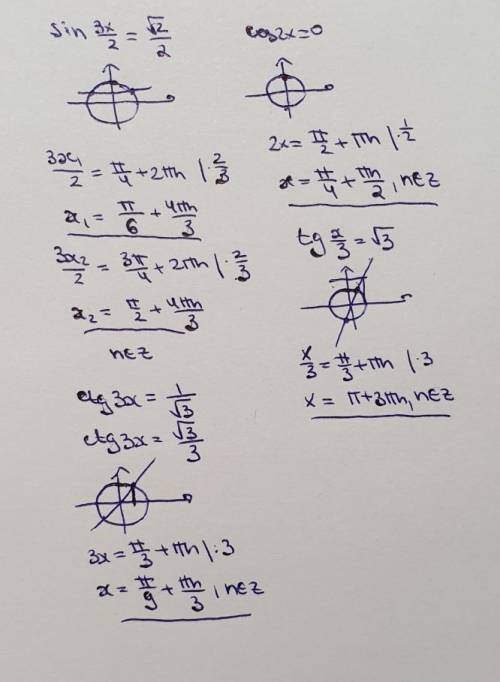 sin 3x/2 = √2/2
3x₁/2 = π/4 + 2πn |·2/3
x₁ = π/6 + 4πn/3
3x₂/2 = 3π/4 + 2πn |·2/3
x₂ = π/2 + 4πn/3
n∈Z
ctg 3x = 1/√3
ctg 3x = √3/3
3x = π/3 + πn |:3
x = π/9 + πn/3, n∈Z
cos 2x = 0
2x = π/2 + πn |·1/2
x = π/4 + πn/2, n∈Z
tg x/3 = √3
x/3 = π/3 + πn |·3
x = π + 3πn, n∈Z